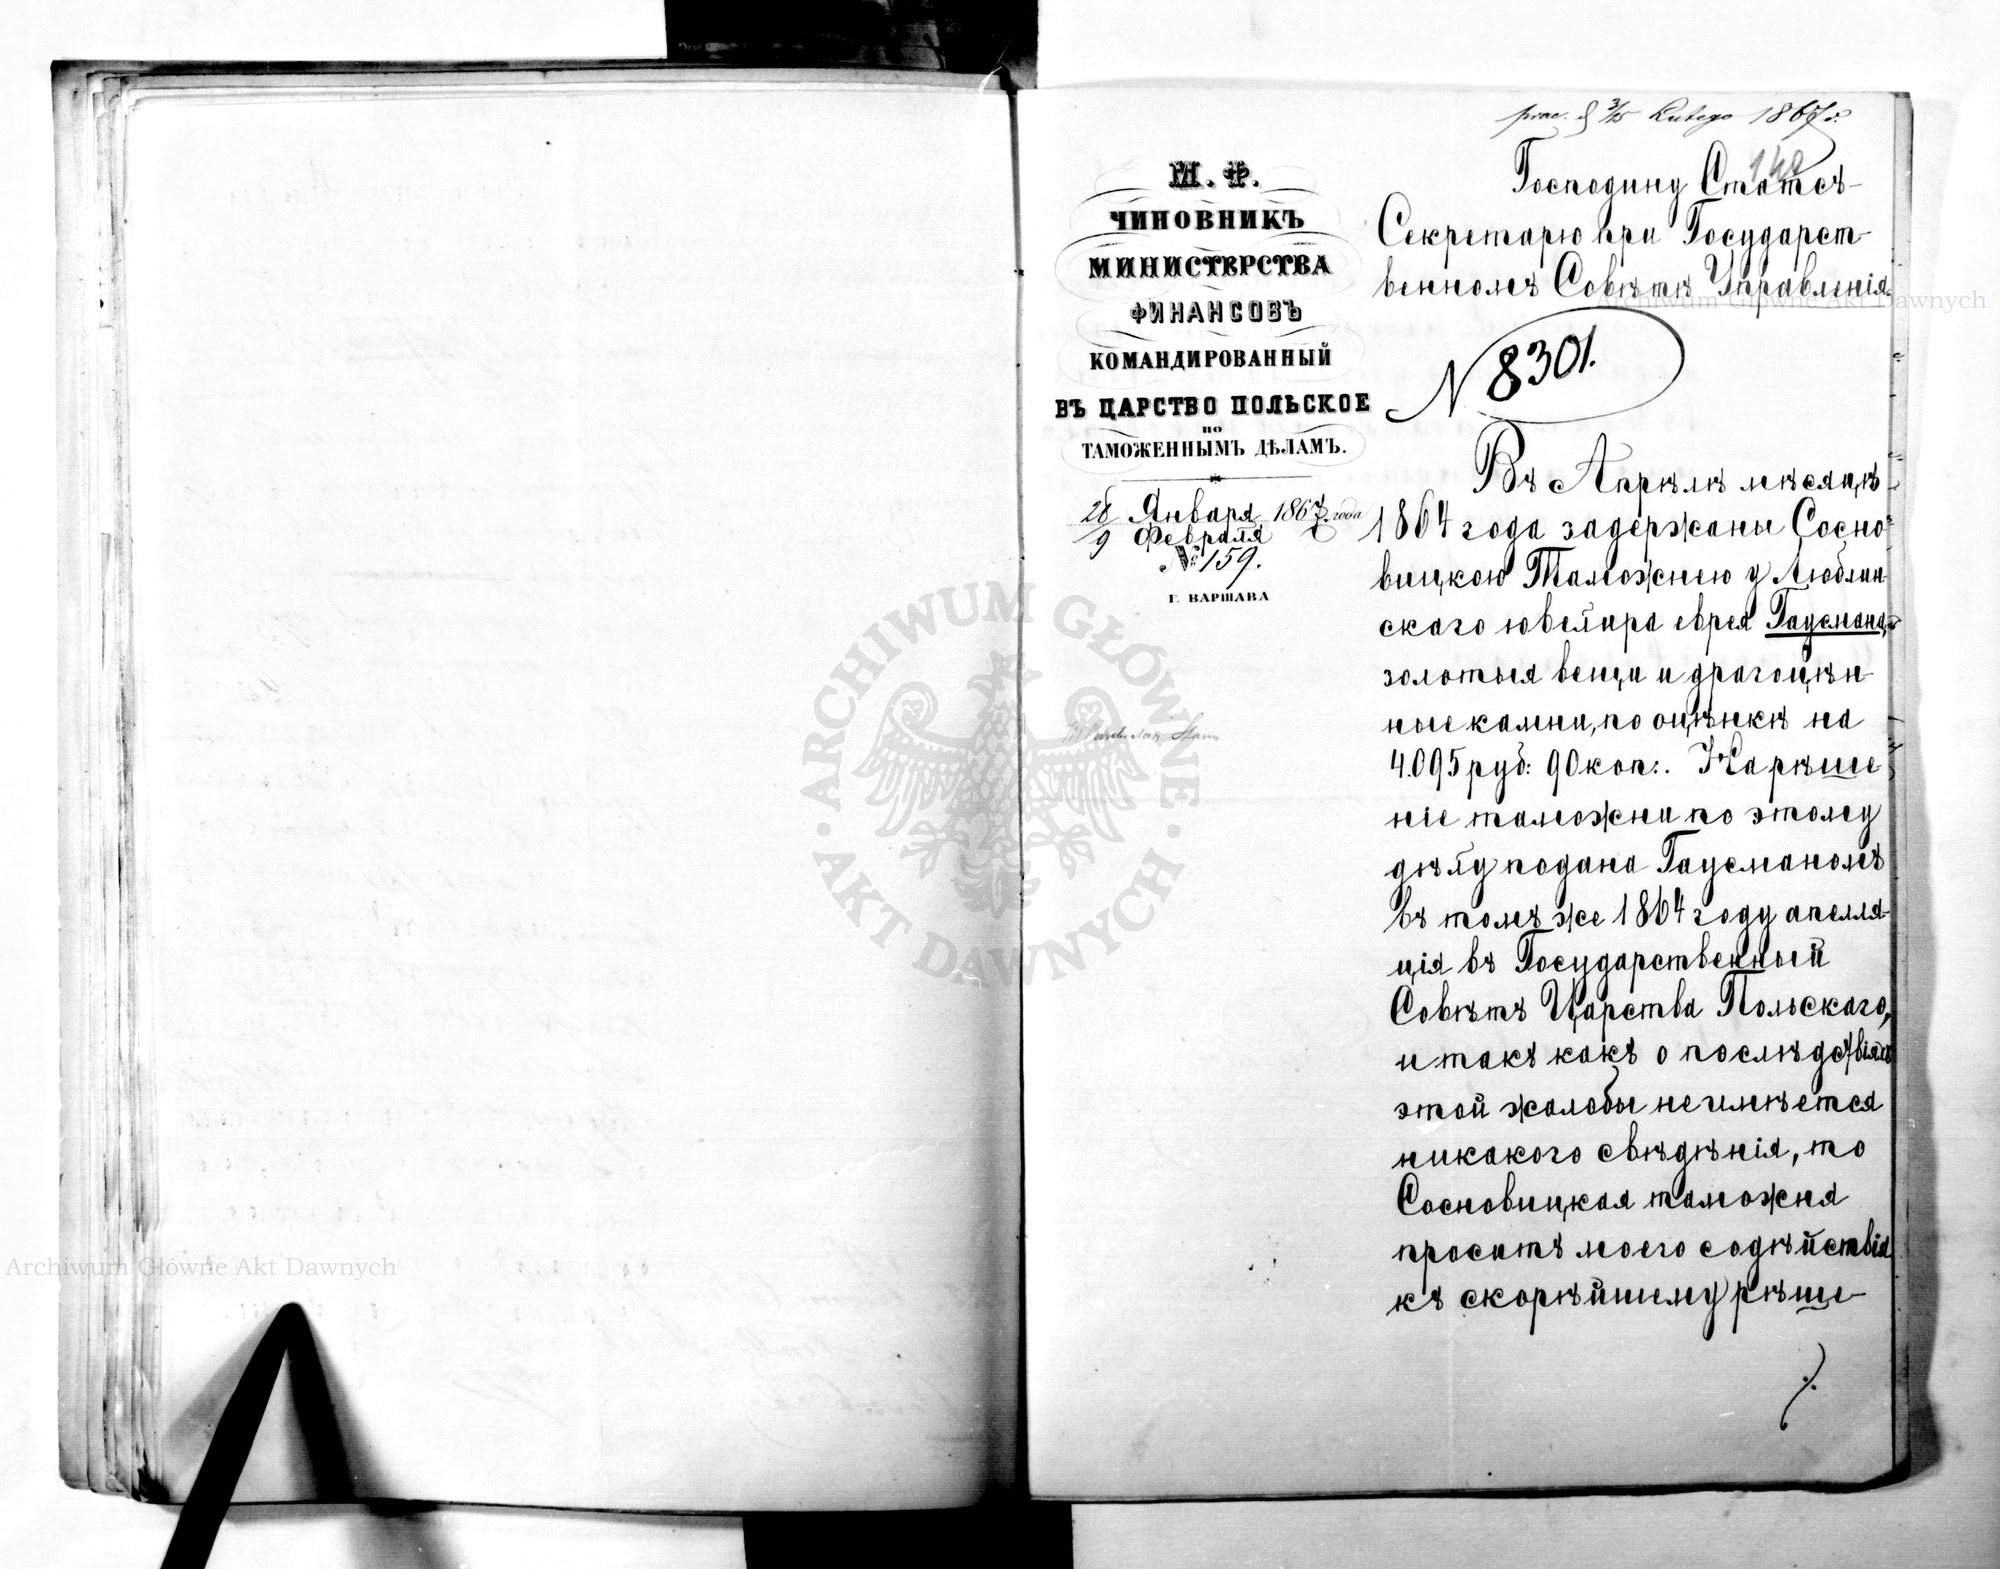 prac. d 3/15 Lutego 1867 r.
148
М. Ф.
ЧИНОВНИКЪ
МИНИСТЕРСТВА
ФИНАНСОВЪ
КОМАНДИРОВАННЫЙ
ВЪ ЦАРСТВО ПОЛЬСКОЕ
по
ТАМОЖЕННЫМЪ ДѢЛАМЪ.
28 Января 1867 года
9 Февраля
№ 159.
Г. ВАРШАВА
Господину Статсъ-
Секретарю при Государст-
венномъ Совѣтѣ Управленія.
N 8301.
Въ Апрѣлѣ мѣсяцѣ
1864 года задержаны Сосно-
вицкою Таможнею у Люблин-
скаго ювелира еврея Гаусмана,
золотыя вещи и драгоцѣн-
ные камни, по оцѣнкѣ на
4.095 руб: 90 коп:. На рѣше
ніе таможни по этому
дѣлу подана Гаусманомъ
въ томъ же 1864 году апелля-
ція въ Государственный
Совѣтъ Царства Польскаго,
и такъ какъ о послѣдствіяхъ
этой жалобы не имѣется
никакого свѣдѣнія, то
Сосновицкая таможня
проситъ моего содѣйствія
къ скорѣйшему рѣше-
./.
ARCHIWUM GŁÓWNE
AKT DAWNYCH
Archiwum Główne Akt Dawnych
Archiwum Główne Akt Dawnych